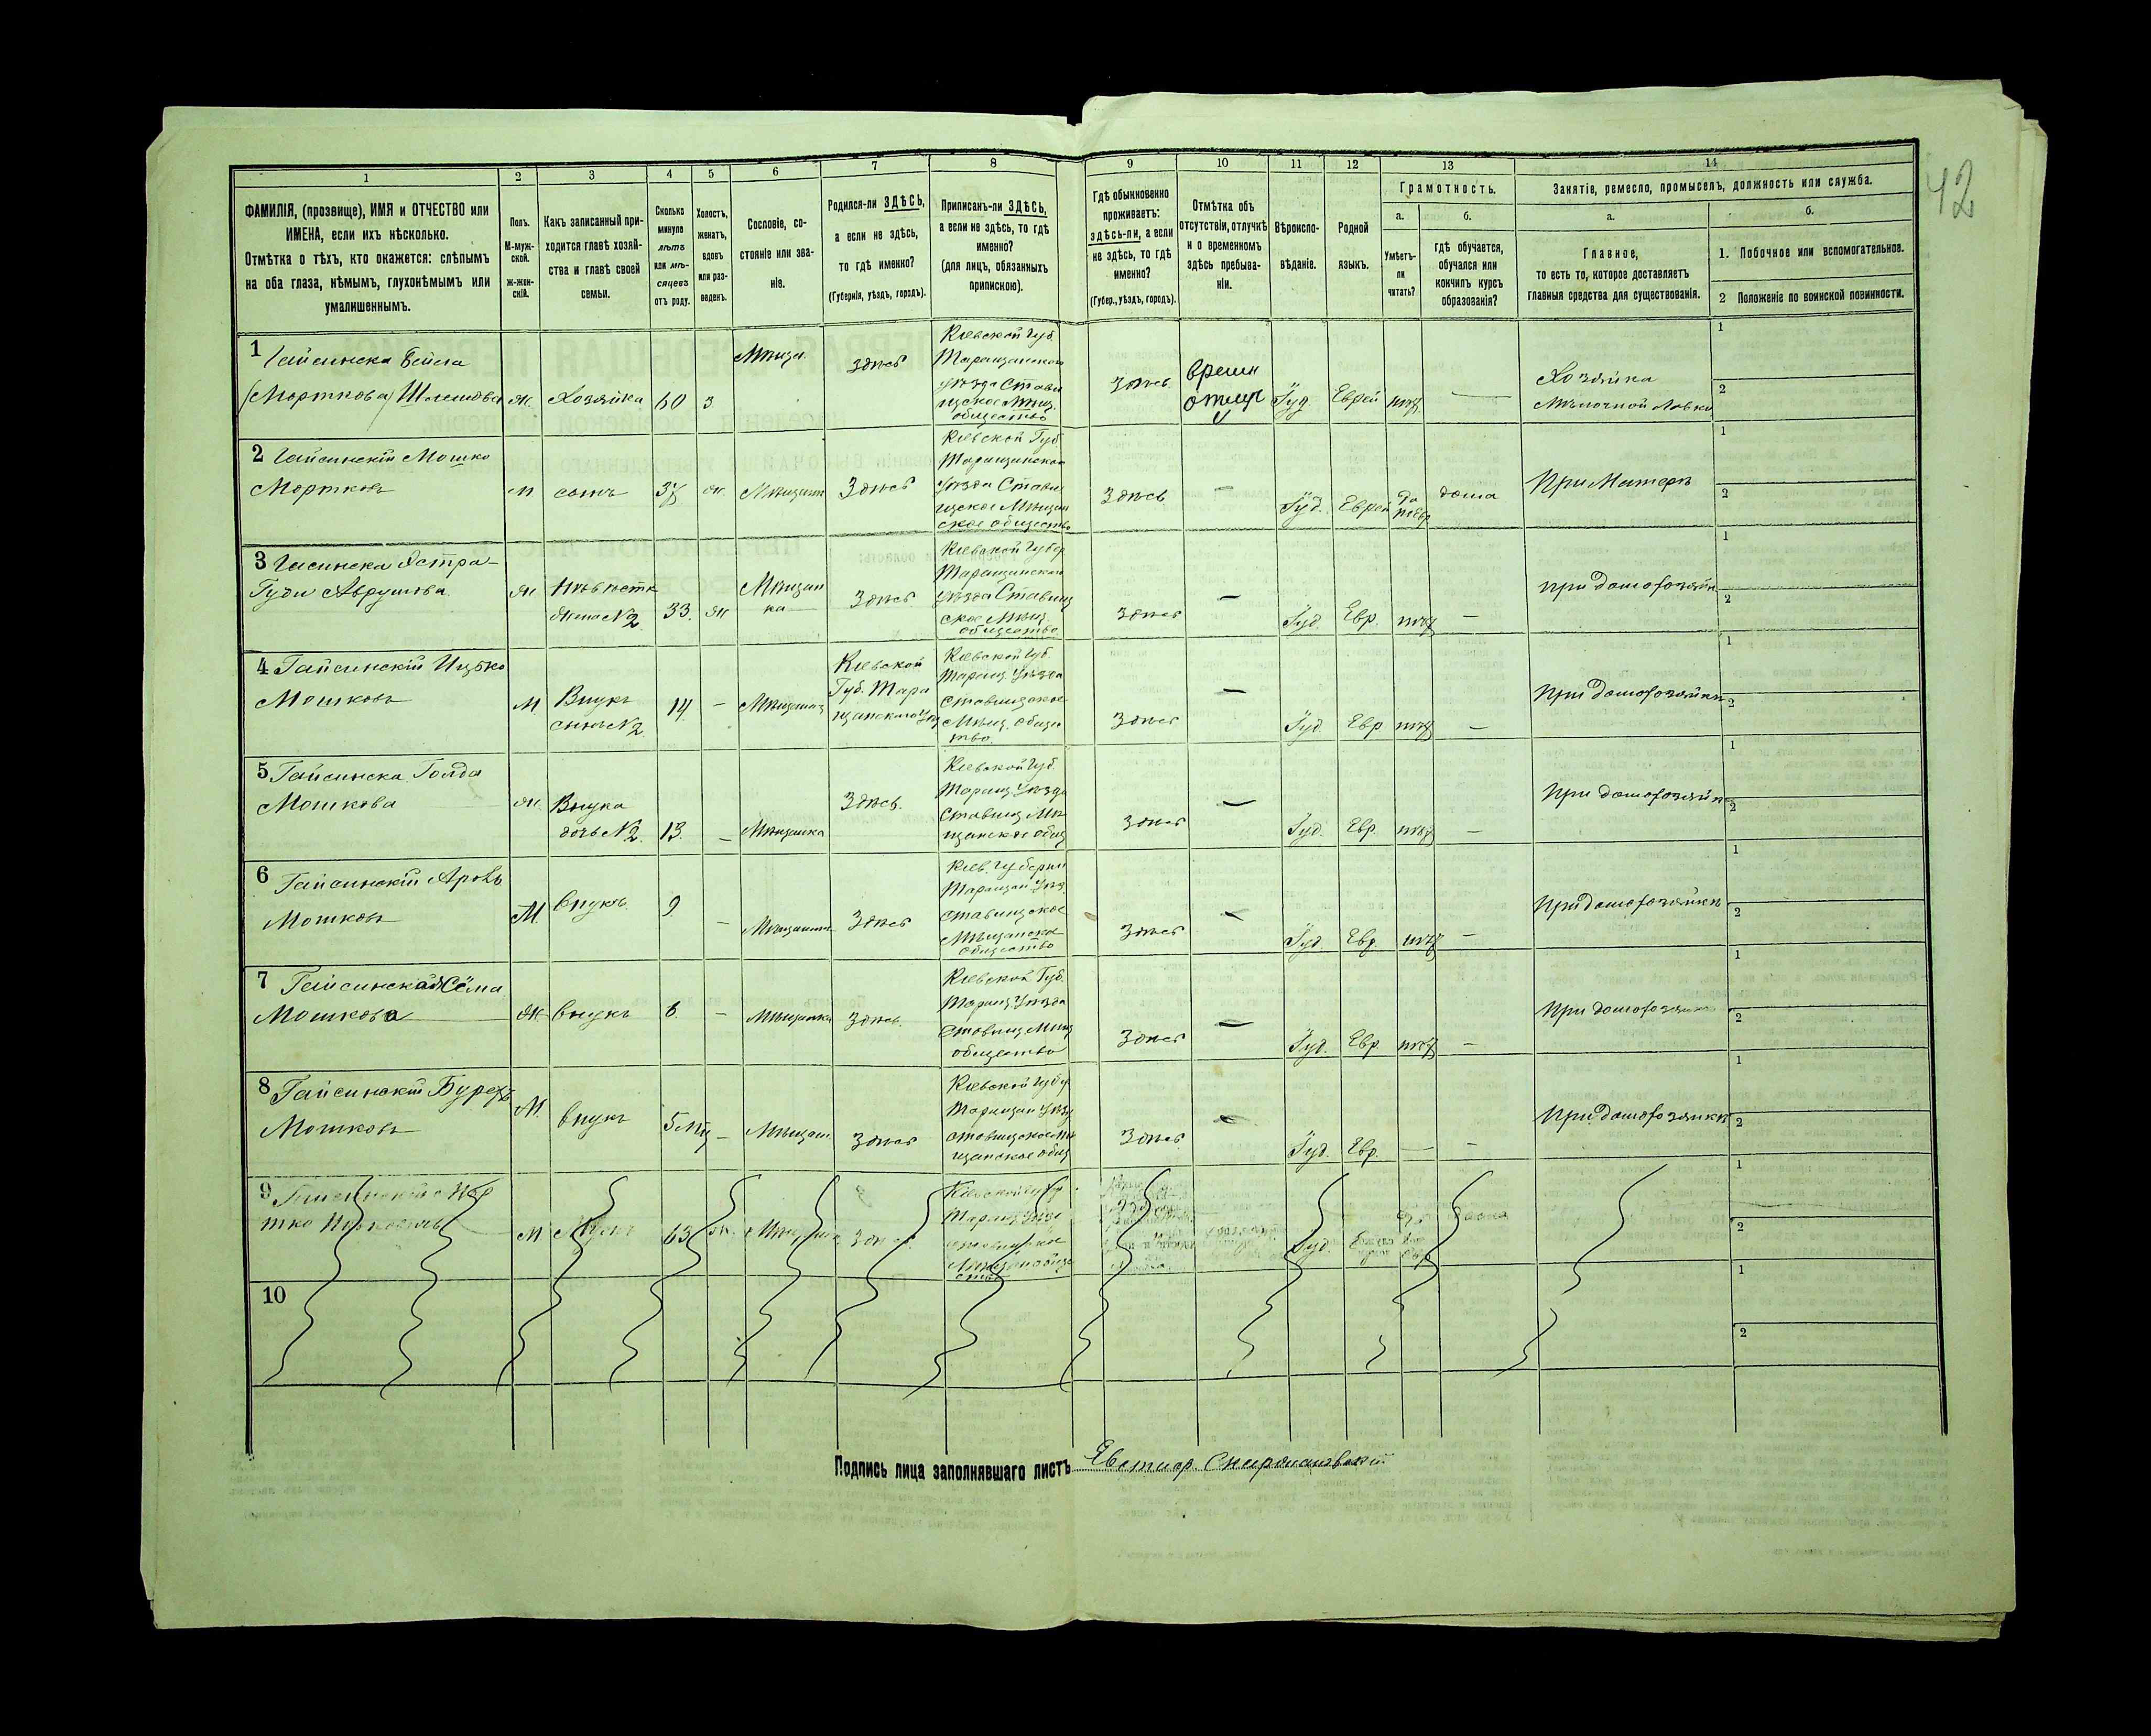 42
1 2 3 4 5 6 7 8 9 10 11 12 13 14
ФАМИЛІЯ, (прозвище), ИМЯ и ОТЧЕСТВО или
ИМЕНА, если ихъ нѣсколько.
Отмѣтка о тѣхъ, кто окажется: слѣпымъ
на оба глаза, нѣмымъ, глухонѣмымъ или
умалишеннымъ.
Полъ.
М-муж-
ской.
ж-жен-
скій.
Какъ записанный при-
ходится главѣ хозяй-
ства и главѣ своей
семьи.
Сколько
минуло
лѣтъ
или мѣ-
сяцевъ
отъ роду.
Холостъ,
женатъ,
вдовъ
или раз-
веденъ.
Сословіе, со-
стояніе или зва-
ніе.
Родился-ли ЗДѢСЬ,
а если не здѣсь,
то гдѣ именно?
(Губернія, уѣздъ, городъ).
Приписанъ-ли ЗДѢСЬ,
а если не здѣсь, то гдѣ
именно?
(для лицъ, обязанныхъ
припискою).
Гдѣ обыкновенно
проживаетъ:
здѣсь-ли, а если
не здѣсь, то гдѣ
именно?
(Губер., уѣздъ, городъ).
Отмѣтка объ
отсутствіи, отлучкѣ
и о временномъ
здѣсь пребыва-
ніи.
Вѣроиспо-
вѣданіе.
Родной
языкъ.
Грамотность.
а.
Умѣетъ-
ли
читать?
б.
гдѣ обучается,
обучался или
кончилъ курсъ
образованія?
Занятіе, ремесло, промыселъ, должность или служба.
а.
Главное,
то есть то, которое доставляетъ
главныя средства для существованія.
б.
1. Побочное или вспомогательное.
2 Положеніе по воинской повинности.
1 Гайсинска Бейла
(Морткова) Шлемова
ж.
Хозяйка
60
Мѣщ.
Здѣсь
Кіевской Губ.
Таращанскаго
уѣзда Стави
щское Мѣщ.
общество
Здѣсь
Времен
отлуч
Іуд.
Еврей
нѣт
—
Хозяйка
Мѣлочной Лавки
1
2
2 Гайсинскій Мошко
Мортковъ
М
сынъ
ж.
Мѣщанин
Здѣсь
Кіевской Губ
Таращанскаго
уѣзда Стави
щское Мѣщан
ское общество
Здѣсь
—
Іуд.
Еврей
да
по Евр
дома
При Матери
1
2
3 Гайсинска Эстра-
Гуди Аврумова
ж
Невѣстк
Жена №2
33.
ж
Мѣщан
ка
Здѣсь
Кіевской Губер
Таращанскаго
уѣзда Ставищ
ское Мѣщ.
общество
Здѣсь
—
Іуд.
Евр.
нѣт
—
при домохозяйкѣ
1
2
4 Гайсинскій Ицько
Мошковъ
М.
Внукъ
сынъ №2
14
—
Мѣщанин
Кіевской
Губ. Тара
щанскаго Уѣз
Кіевской Губ.
Таращ. Уѣзда
Ставищское
Мѣщ. общес
тво.
Здѣсь
—
Іуд
Евр
нѣт
—
При домохозяйкѣ
1
2
5 Гайсинска Голда
Мошкова
ж.
Внука
дочь №2
13.
—
Мѣщанка
Здѣсь.
Кіевской Губ.
Таращ Уѣзда
Ставищ Мѣ
щанское общ
Здѣсь
—
Іуд.
Евр.
нѣт
—
При домохозяйкѣ
1
2
6 Гайсинскій Аронъ
Мошковъ
М
внукъ
9
—
Мѣщанин
Здѣсь
Кіев. Губерни
Таращан Уѣз
ставищское
Мѣщанское
общество
Здѣсь
—
Іуд
Евр.
нѣт
—
При домохозяйкѣ
1
2
7 Гайсинская Сёма
Мошкова
ж
внукъ
—
Мѣщанка
Здѣсь.
Кіевской Губ.
Таращ Уѣзда
Ставищ Мѣщ
общество
Здѣсь
—
Іуд.
Евр.
нѣт
—
При домохозяйкѣ
1
2
8 Гайсинскій
Мошковъ
М.
внукъ
5 мц
—
Мѣщан.
Здѣсь
Кіевской Губер
Таращан Уѣзд
ставищское мѣ
щанское общ
Здѣсь
—
Іуд.
Евр.
—
—
При домохозяйкѣ
1
2
9 Гайсинскій Мор
тко
М
Мужъ
63
ж.
Здѣсь
Кіевской Губ
Таращ Уѣзд
ставищское
Мѣщан общ
ство
Іуд.
Евр
дома
1
2
10
1
2
Подпись лица заполнявшаго листъ